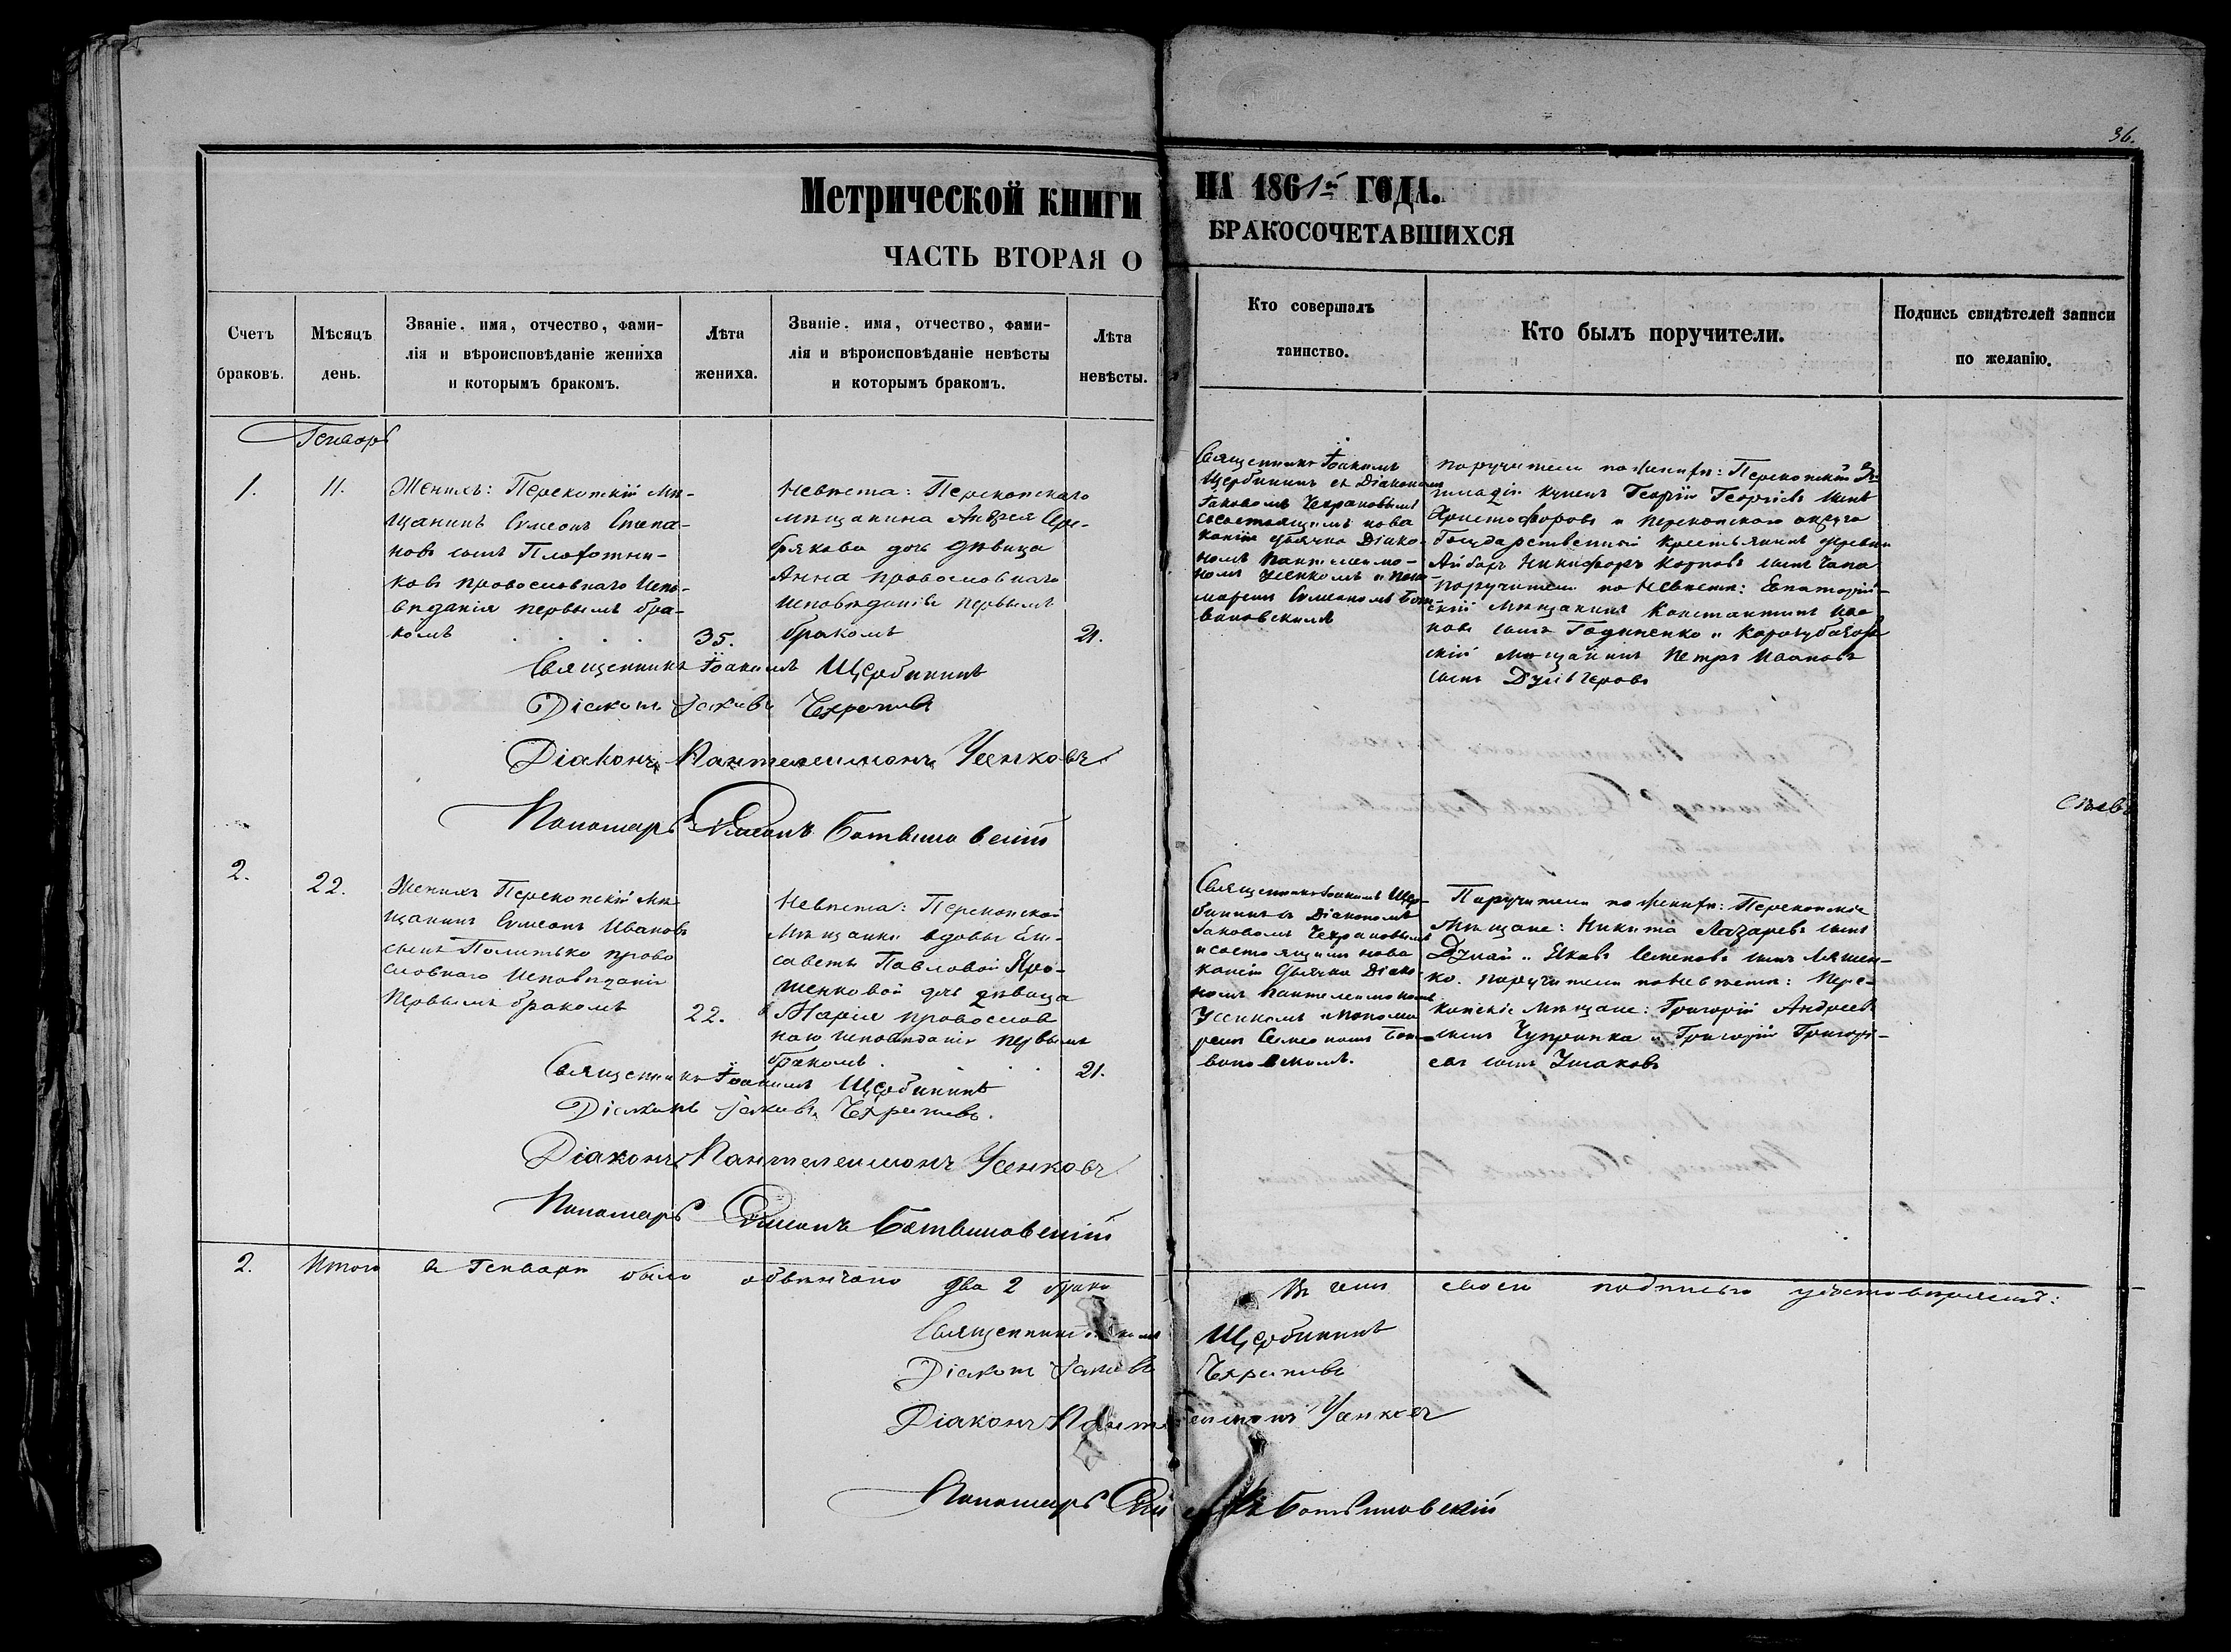 36.
Метрической книги НА 1861й ГОДА.
ЧАСТЬ ВТОРАЯ О БРАКОСОЧЕТАВШИХСЯ
Счетъ
браковъ.
Мѣсяцъ
день.
Званіе, имя, отчество, фами-
лія и вѣроисповѣданіе жениха
и которымъ бракомъ.
Лѣта
жениха.
Званіе, имя, отчество, фами-
лія и вѣроисповѣданіе невѣсты
и которымъ бракомъ.
Лѣта
невѣсты.
Кто совершалъ
таинство.
Кто былъ поручители.
Подпись свидѣтелей записи
по желанію.
Генварь
1.
11.
Женихъ: Перекопскій мѣ-
щанинъ Симеонъ Степа-
новъ сынъ Плохотни-
ковъ православнаго испо-
вѣданія первымъ бра-
комъ
35.
Невѣста: Перекопскаго
мѣщанина Андрея Сере-
брякова дочь дѣвица
Анна православнаго
исповѣданія первымъ
бракомъ
21.
Священникъ Іоакимъ
Щербининъ съ Діакономъ
Іаковомъ Чехрановымъ
состоящимъ на ва
кансіи дьячка Діако-
номъ Пантелеимо-
номъ Усенкомъ и Поно-
маремъ Симеономъ Бот-
виновскимъ
поручители по женихѣ: Перекопскій
гильдіи купецъ Георгій Георгіевъ сынъ
Христофоровъ и перекопскаго округа
Государственный крестьянинъ деревни
Айбаръ Никифоръ Карповъ сынъ Чапа
поручители по невѣстѣ: Евпаторій-
скій мѣщанинъ Константинъ Ива
новъ сынъ Годиненко и Карасубазар
скій мѣщанинъ Петръ Ивановъ
сынъ
Священникъ Іоакимъ Щербининъ
Діаконъ Іаковъ Чехрановъ
Діаконъ Пантелеимонъ Усенковъ
Пономарь Симеонъ Ботвиновскій
2.
22.
Женихъ Перекопскій мѣ
щанинъ Симеонъ Ивановъ
сынъ Политько право
славнаго исповѣданія
первымъ бракомъ
22.
Невѣста: Перекопской
мѣщанки вдовы Ели-
саветы Павловой Яро-
шенковой дочь дѣвица
Марія православ
наго исповѣданія первымъ
бракомъ
21.
Священникъ Іоакимъ Щер-
бининъ съ Діакономъ
Іаковомъ Чехрановымъ
и состоящимъ на ва
кансіи дьячка Діако-
номъ Пантелеимономъ
Усенкомъ и Понома
ремъ Симеономъ Бот-
виновскимъ.
Поручители по женихѣ: Перекопскіе
мѣщане: Никита Лазаревъ сынъ
Дунай и Яковъ Семеновъ сынъ Ляшен-
ко. поручители по невѣстѣ: Пере-
копскіе мѣщане: Григорій Андреевъ
сынъ Чупринка и Григорій Григорь-
евъ сынъ Ушаковъ
Священникъ Іоакимъ Щербининъ
Діаконъ Іаковъ Чехрановъ.
Діаконъ Пантелеимонъ Усенковъ
Пономарь Симеонъ Ботвиновскій
2. Итого въ Генварѣ было обвѣнчано два 2 брака
Въ чемъ своею подписью удостовѣряемъ:
Священникъ Іоакимъ Щербининъ
Діаконъ Іаковъ Чехрановъ
Діаконъ Пантелеимонъ Усенковъ
Пономарь Симеонъ Ботвиновскій